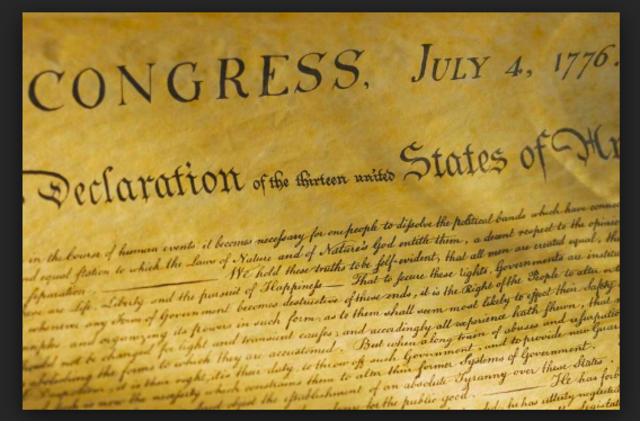 CONGRESS, JULY 4, 1776.
Declaration of the thirteen united States of
in the course of human events it becomes necessary for one people to dissolve the political bands which have
equal station to which the Laws of Nature and of Nature's God entitle them, a decent respect to the
separation. We hold these truths to be self-evident, that all men are created equal,
are Life, Liberty and the pursuit of Happiness— That to secure these rights, Governments are
whenever any Form of Government becomes destructive of these ends, it is the Right of the People to alter
and organizing its powers in such form, as to them shall seem most likely to effect their Safety
not be changed for light and transient causes; and accordingly all experience hath shewn, that
abolishing the forms to which they are accustomed. But when a long train of abuses and
it is their right, it is their duty, to throw off such Government, and to provide new
is now the necessity which constrains them to alter their former Systems of Government.
object the establishment of an absolute Tyranny over these States.
for the public good. He has
he has utterly neglected